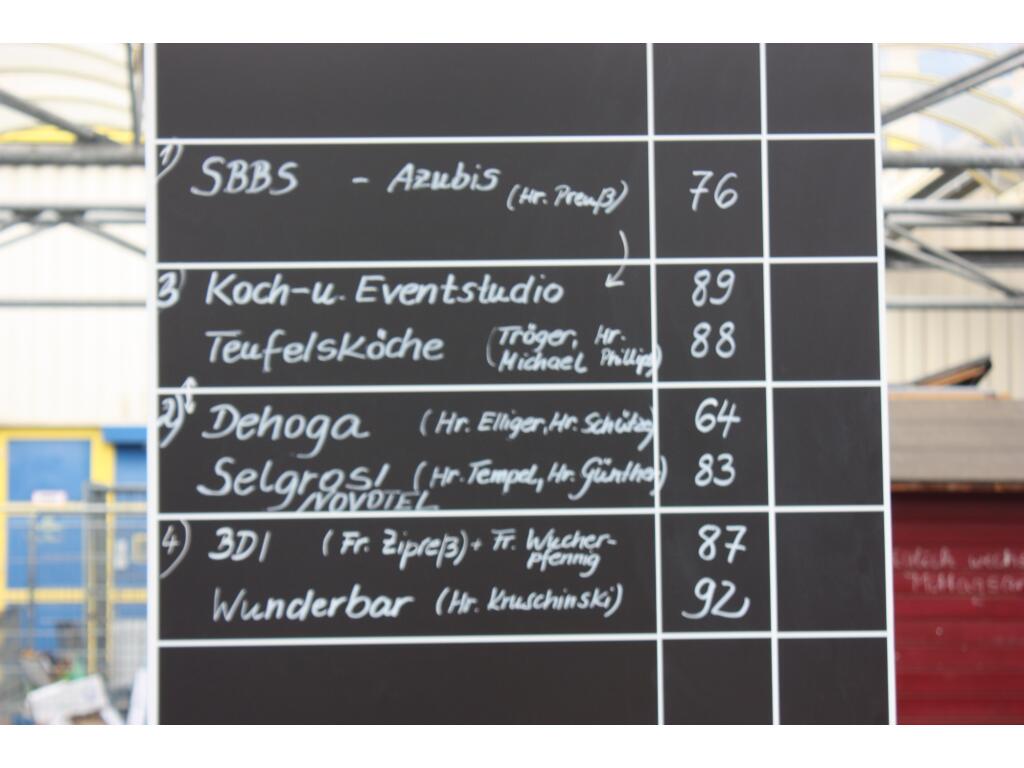 1) SBBS - Azubis (Hr. Preuß) 76
3 Koch-u. Eventstudio 89
Teufelsköche (Tröger, Hr. Michael Phillips) 88
2) Dehoga (Hr. Elliger, Hr. Schütze) 64
Selgros/ (Hr. Tempel, Hr. Günther) 83
NOVOTEL
4) 3DI (Fr. Zipreß) + Fr. Wucher-
pfennig 87
Wunderbar (Hr. Kruschinski) 92